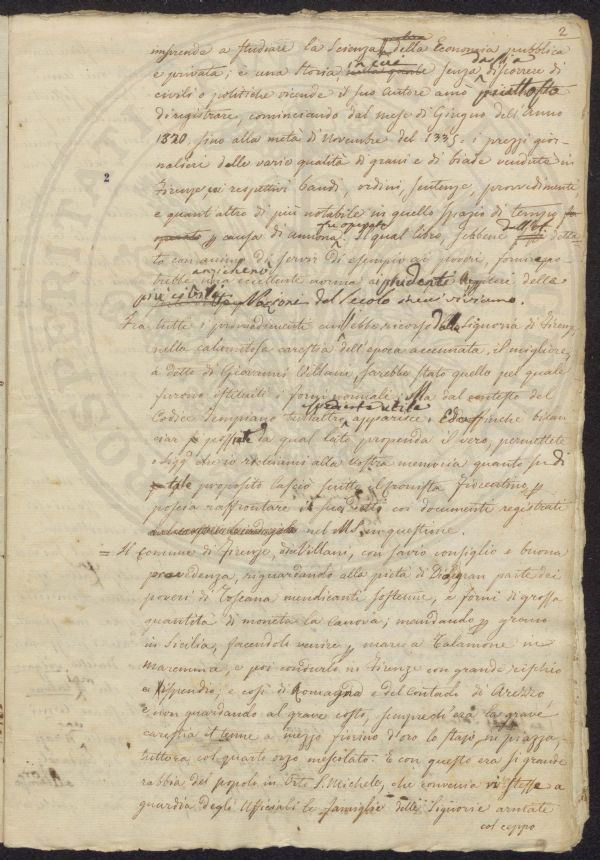 2
imprende a studiare la Scienza della Economia pubblica
e privata; e una storia in cui senza discorrere di
civili o politiche vicende il suo autore amò piuttosto
di registrare, cominciando dal mese di Giugno dell'anno
1320 sino alla metà di Novembre del 1335. i prezzi gior-
nalieri delle varie qualità di grani e di biade vendute in
2
Firenze, coi respettivi bandi, ordini, sentenze, provvedimenti
e quant'altro di più notabile in quello spazio di tempo
causa di annona. Il qual libro, sebbene detta-
to con animo di servir di esempio ai poveri, forni po-
trebbe anzichenò una eccellente norma ai prudenti Rettori della
più civile del secolo in cui viviamo.
Fra tutti i provvedimenti cui ebbe ricorso la Signoria di Firenze
nella calamitosa carestia dell'epoca accennata, il migliore,
a detto di Giovanni Villani, sarebbe stato quello pel quale
furono istituiti i forni normali. Ma dal contesto del
Codice Tempiano tutt'altro apparisce. E affinchè bilan-
ciar possiate da qual lato propenda il vero, permettete
o Sigg. che io richiami alla vostra memoria quanto su di
tale proposito lasciò scritto il Cronista Fiorentino, p
poscia raffrontare il suo detto con documenti registrati
nel MS. in questione.
= Il Comune di Firenze, dice Villani, con savio consiglio e buona
provedenza, riguardando alla pietà di Dio, gran parte dei
poveri di Toscana mendicanti sostenne, e fornì di grossa
quantità di moneta la Canova; mandando p grano
in Sicilia, facendoli venire p mare a Talamone in
Maremma, e poi condurlo in Firenze con grande rischio
e dispendio; e così di Romagna e del Contado di Arezzo,
e non guardando al grave costo, sempre ch'era la grave
carestia il tenne a mezzo fiorino d'oro lo stajo in piazza,
tuttora col quarto orzo mescolato. E con questo era sì grande
rabbia del popolo in Orto S. Michele, che convenia vi stesse a
guardia degli Uffiziali le famiglie delle Signorie armate
col ceppo